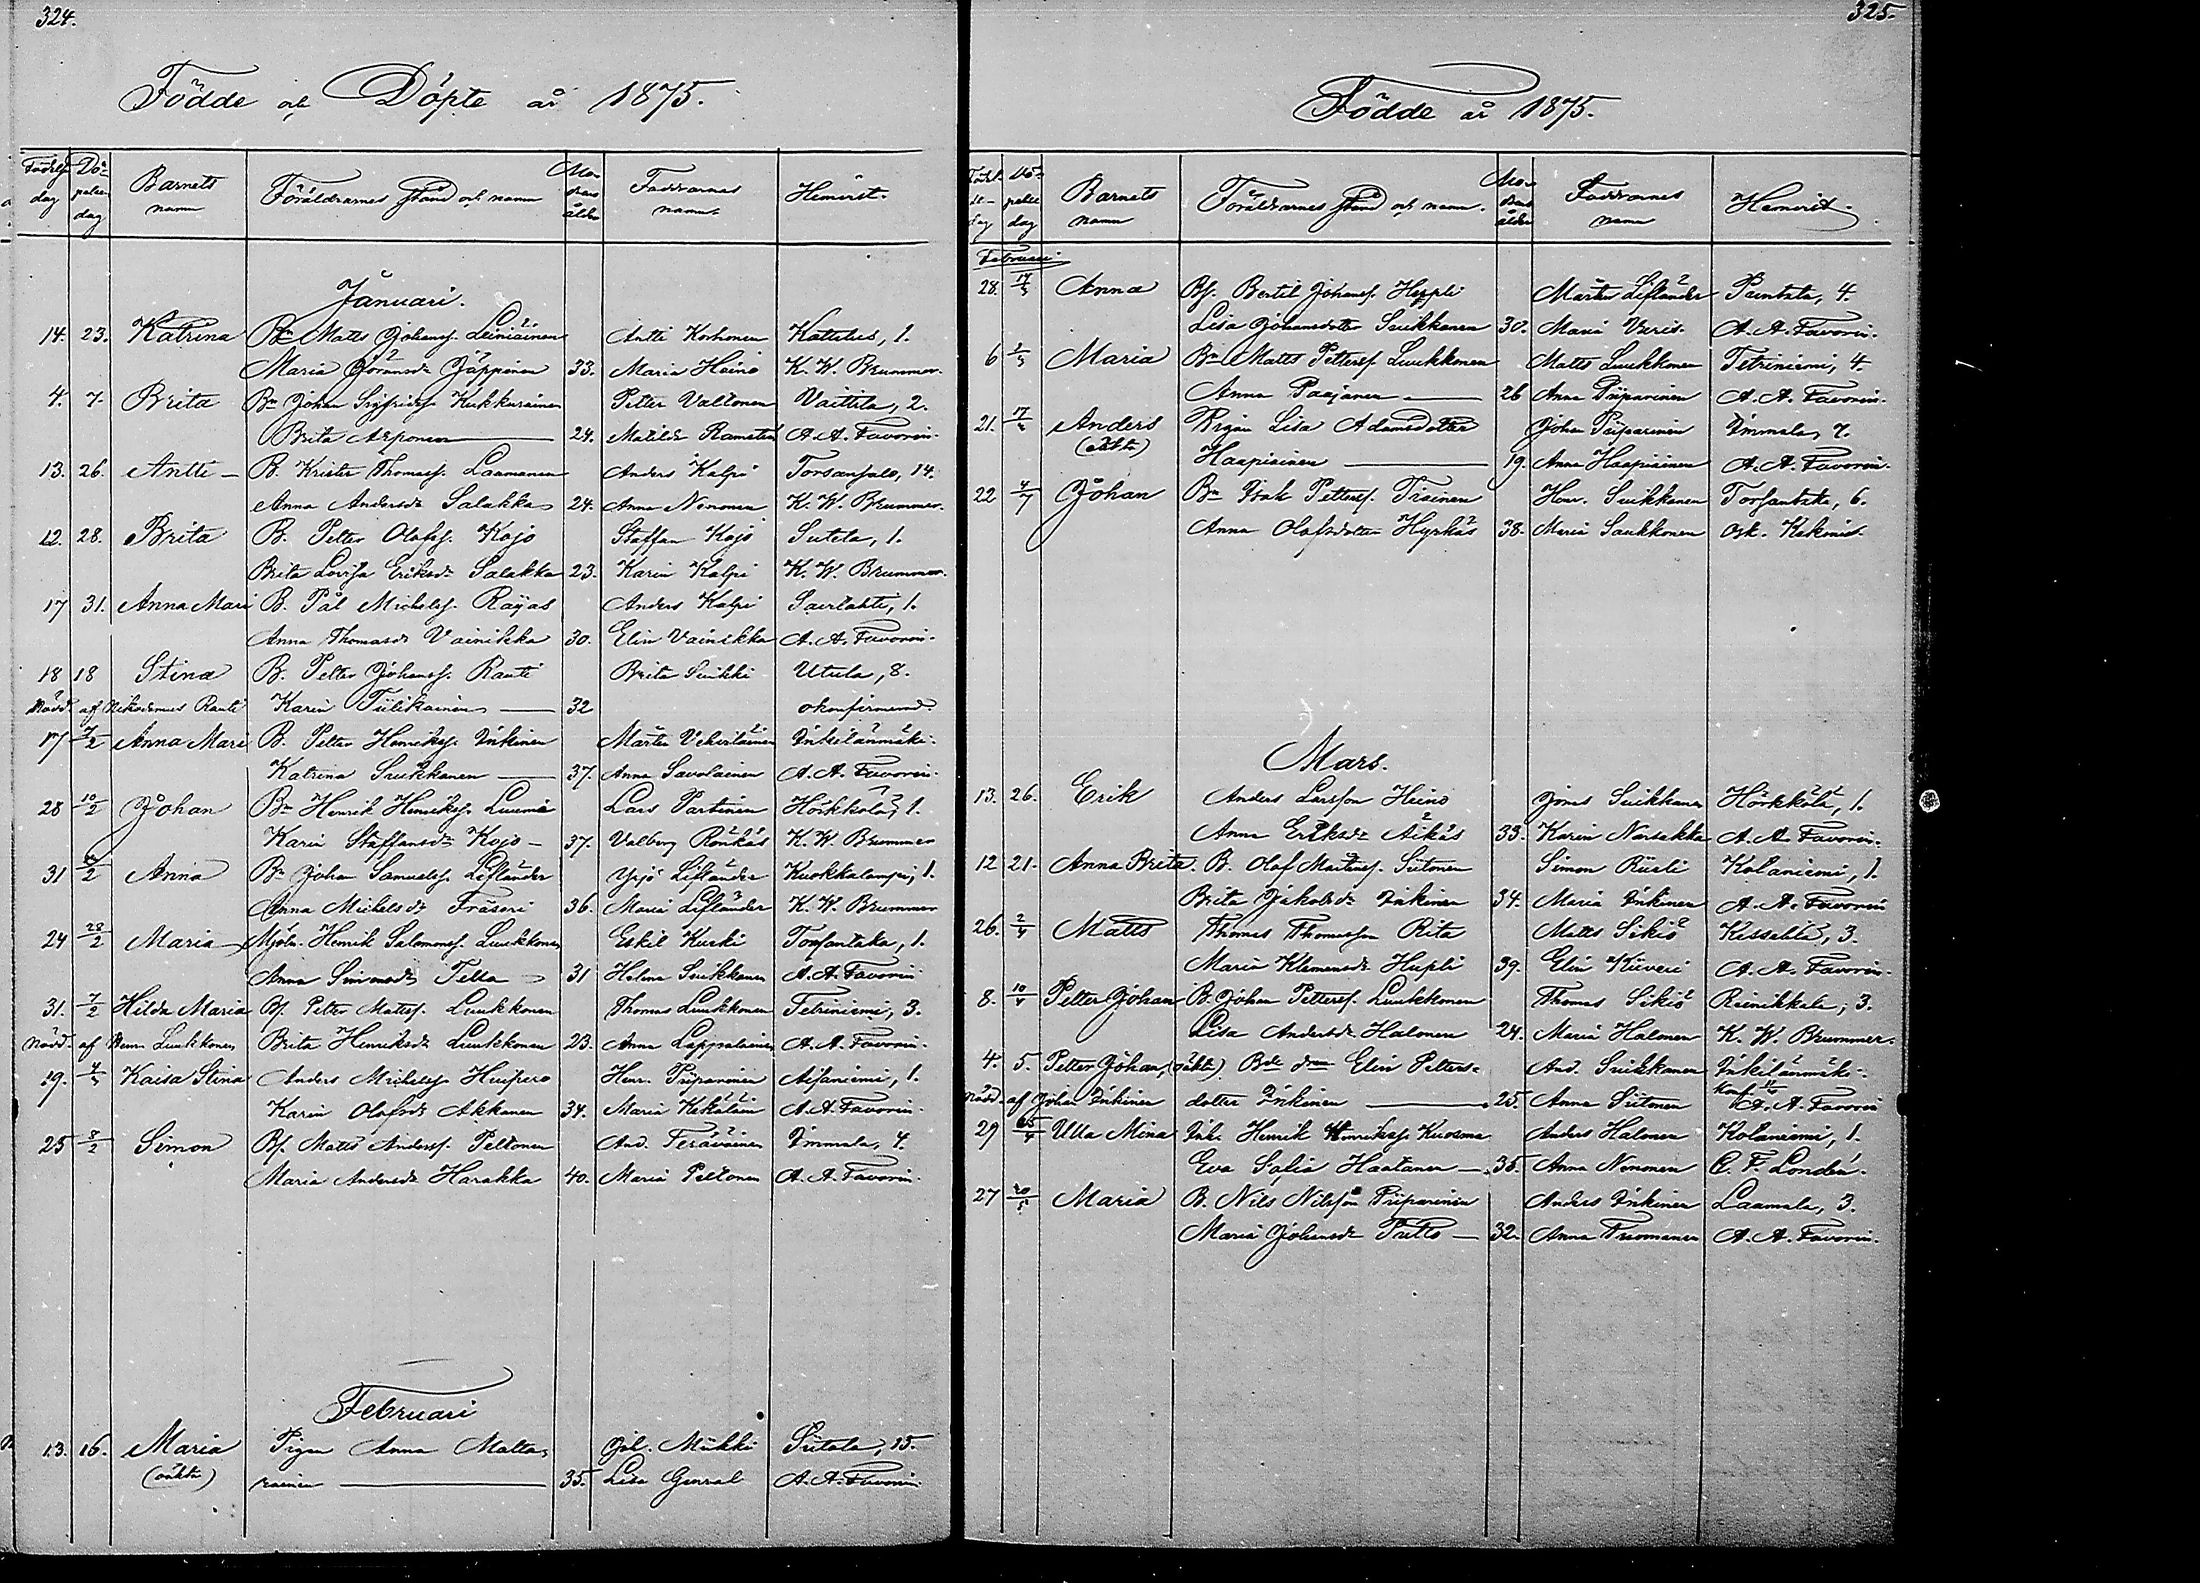 324.
Födde och Döpte år 1875.
Födelse dag Döpelse dag Barnets namn Föräldrarnes stånd och namn Modrens ålder Faddrarnes namn Hemvist.
Januari.
14. 23. Katrina Bn Matts Johansf. Leiniäinen Antti Korhonen Kattelus, 1.
Maria Göransdr Jäppinen 33. Maria Heino K. W. Brummer.
4. 7. Brita Bn Johan Sigfridsf. Kukkurainen Petter Valtonen Vaittila, 2.
Brita Asponen 24. Matilda Ramsted A. A. Favorin.
13. 26. Antti B. Krister Thomasf. Laamanen Anders Kalpi Torsansalo, 14.
Anna Andersdr Salakka 24. Anna Nenonen K. W. Brummer.
12. 28. Brita B. Petter Olofsf. Kojo Staffan Kojo Sutela, 1.
Brita Lovisa Eriksdr Salakka 23. Karin Kalpi K. W. Brummer.
17 31. Anna Mari B. Pål Michelsf. Rajas Anders Kalpi Saarlahti, 1.
Anna Thomasdr Vainikka 30. Elin Vainikka A. A. Favorin.
18 18 Stina B. Petter Johansf. Rauti Brita Suikki Utula, 8.
Nödd. af Nikodemus Rauti Karin Tiilikainen 32 okonfirmerad.
17 7/2 Anna Mari B. Petter Henriksf. Inkinen Mårten Vekviläinen Inkilänmäki.
Katrina Suikkanen 37. Anna Savolainen A. A. Favorin.
28 10/2 Johan Bn Henrik Henriksf. Luumi Lars Partinen Hörkkölä, 1.
Karin Staffansdr Kojo 37. Valborg Rönkäs K. W. Brummer
31 /2 Anna Bn Johan Samuelsf. Lifländer Yrjö Lifländer Kuokkalampi, 1.
Anna Michelsdr Fräseri 36. Maria Lifländer K. W. Brummer
24 28/2 Maria Mjöln. Henrik Salomonsf. Luukkonen Eskil Kurki Torsantaka, 1.
Anna Simonsdr Tella 31 Helena Suikkanen A. A. Favorin
31. 7/2 Hilda Maria Bf. Petter Mattsf. Luukkonen Thomas Luukkonen Tetriniemi, 3.
Nödd. af Henr. Luukkonen Brita Henriksdr Luukkonen 23. Anna Lappalainen A. A. Favorin.
19. 4/3 Kaisa Stina Anders Michelsf. Huispero Henr. Piiparinen Aisaniemi, 1.
Karin Olofsdr Akkanen 34. Maria Kekäläin A. A. Favorin.
25 8/2 Simon Bf. Matts Andersf. Peltonen And. Teräväinen Immala, 4.
Maria Andersdr Harakka 40. Maria Peltonen A. A. Favorin.
Februari
13. 16. Maria Pigan Anna Matta= Joh. Mikki Siitala, 15.
(oäkta) rainen 35. Lisa General A. A. Favorin.
325.
Födde år 1875.
Födelse- dag Döpelse dag Barnets namn Föräldrarnes stånd och namn. Modrens ålder Faddrarnes namn Hemvist.
Februari.
28. 14/3 Anna Bf. Bertil Johansf. Heppli Mårten Lifländer Puntala, 4.
Lisa Johansdotter Suikkanen 30. Maria Vires. A. A. Favorin.
6 2/3 Maria Bn Matts Pettersf. Luukkonen Matts Luukkonen Tetriniemi, 4.
Anna Paajanen 26 Anna Piiparinen A. A. Favorin.
21. Anders Pigan Lisa Adamsdotter Johan Piiparinen Immala, 7.
(oäkta) Haapiainen 19. Anna Haapiainen A. A. Favorin.
22 4/7 Johan Bn Isak Pettersf. Tiainen Henr. Suikkanen Torsantaka, 6.
Anna Olofsdotter Hyrkäs 38. Maria Saukkonen Osk. Kekonius.
Mars.
13. 26. Erik Anders Larsson Heino Jonas Suikkanen Hörkkölä, 1.
Anna Eriksdr Äikäs 33. Karin Narsakka A. A. Favorin.
12 21. Anna Brita B. Olof Mårtensf. Siitonen Simon Rusli Kolaniemi, 1.
Brita Jakobsdr Inkinen 34. Maria Inkinen A. A. Favorin
26. 2/4 Matts Thomas Thomasson Rita Matts Sikiö Kissalila, 3.
Maria Klemensdr Hupli 39. Elin Kiiveri A. A. Favorin.
8. 10/4 Petter Johan B. Johan Pettersf. Luukkonen Thomas Sikiö Reinikkala, 3.
Lisa Andersdr Halonen 24. Maria Halonen K. W. Brummer.
4. 5. Petter Johan, (oäkta) Elin Petters= And. Suikkanen Inkilänmäki.
Nödd. af Johan Inkinen dotter Inkinen 25. Anna Siitonen A. A. Favorin
29 25/4 Ulla Mina Inh. Henrik Henriksf. Kuosma Anders Halonen Kolaniemi, 1.
Eva Sofia Haatanen 35. Anna Nenonen C. F. Londén.
27 20/5 Maria B. Nils Nilsson Piiparinen Anders Inkinen Laamala, 3.
Maria Johansdr Putto 32. Anna Tuomanen A. A. Favorin.